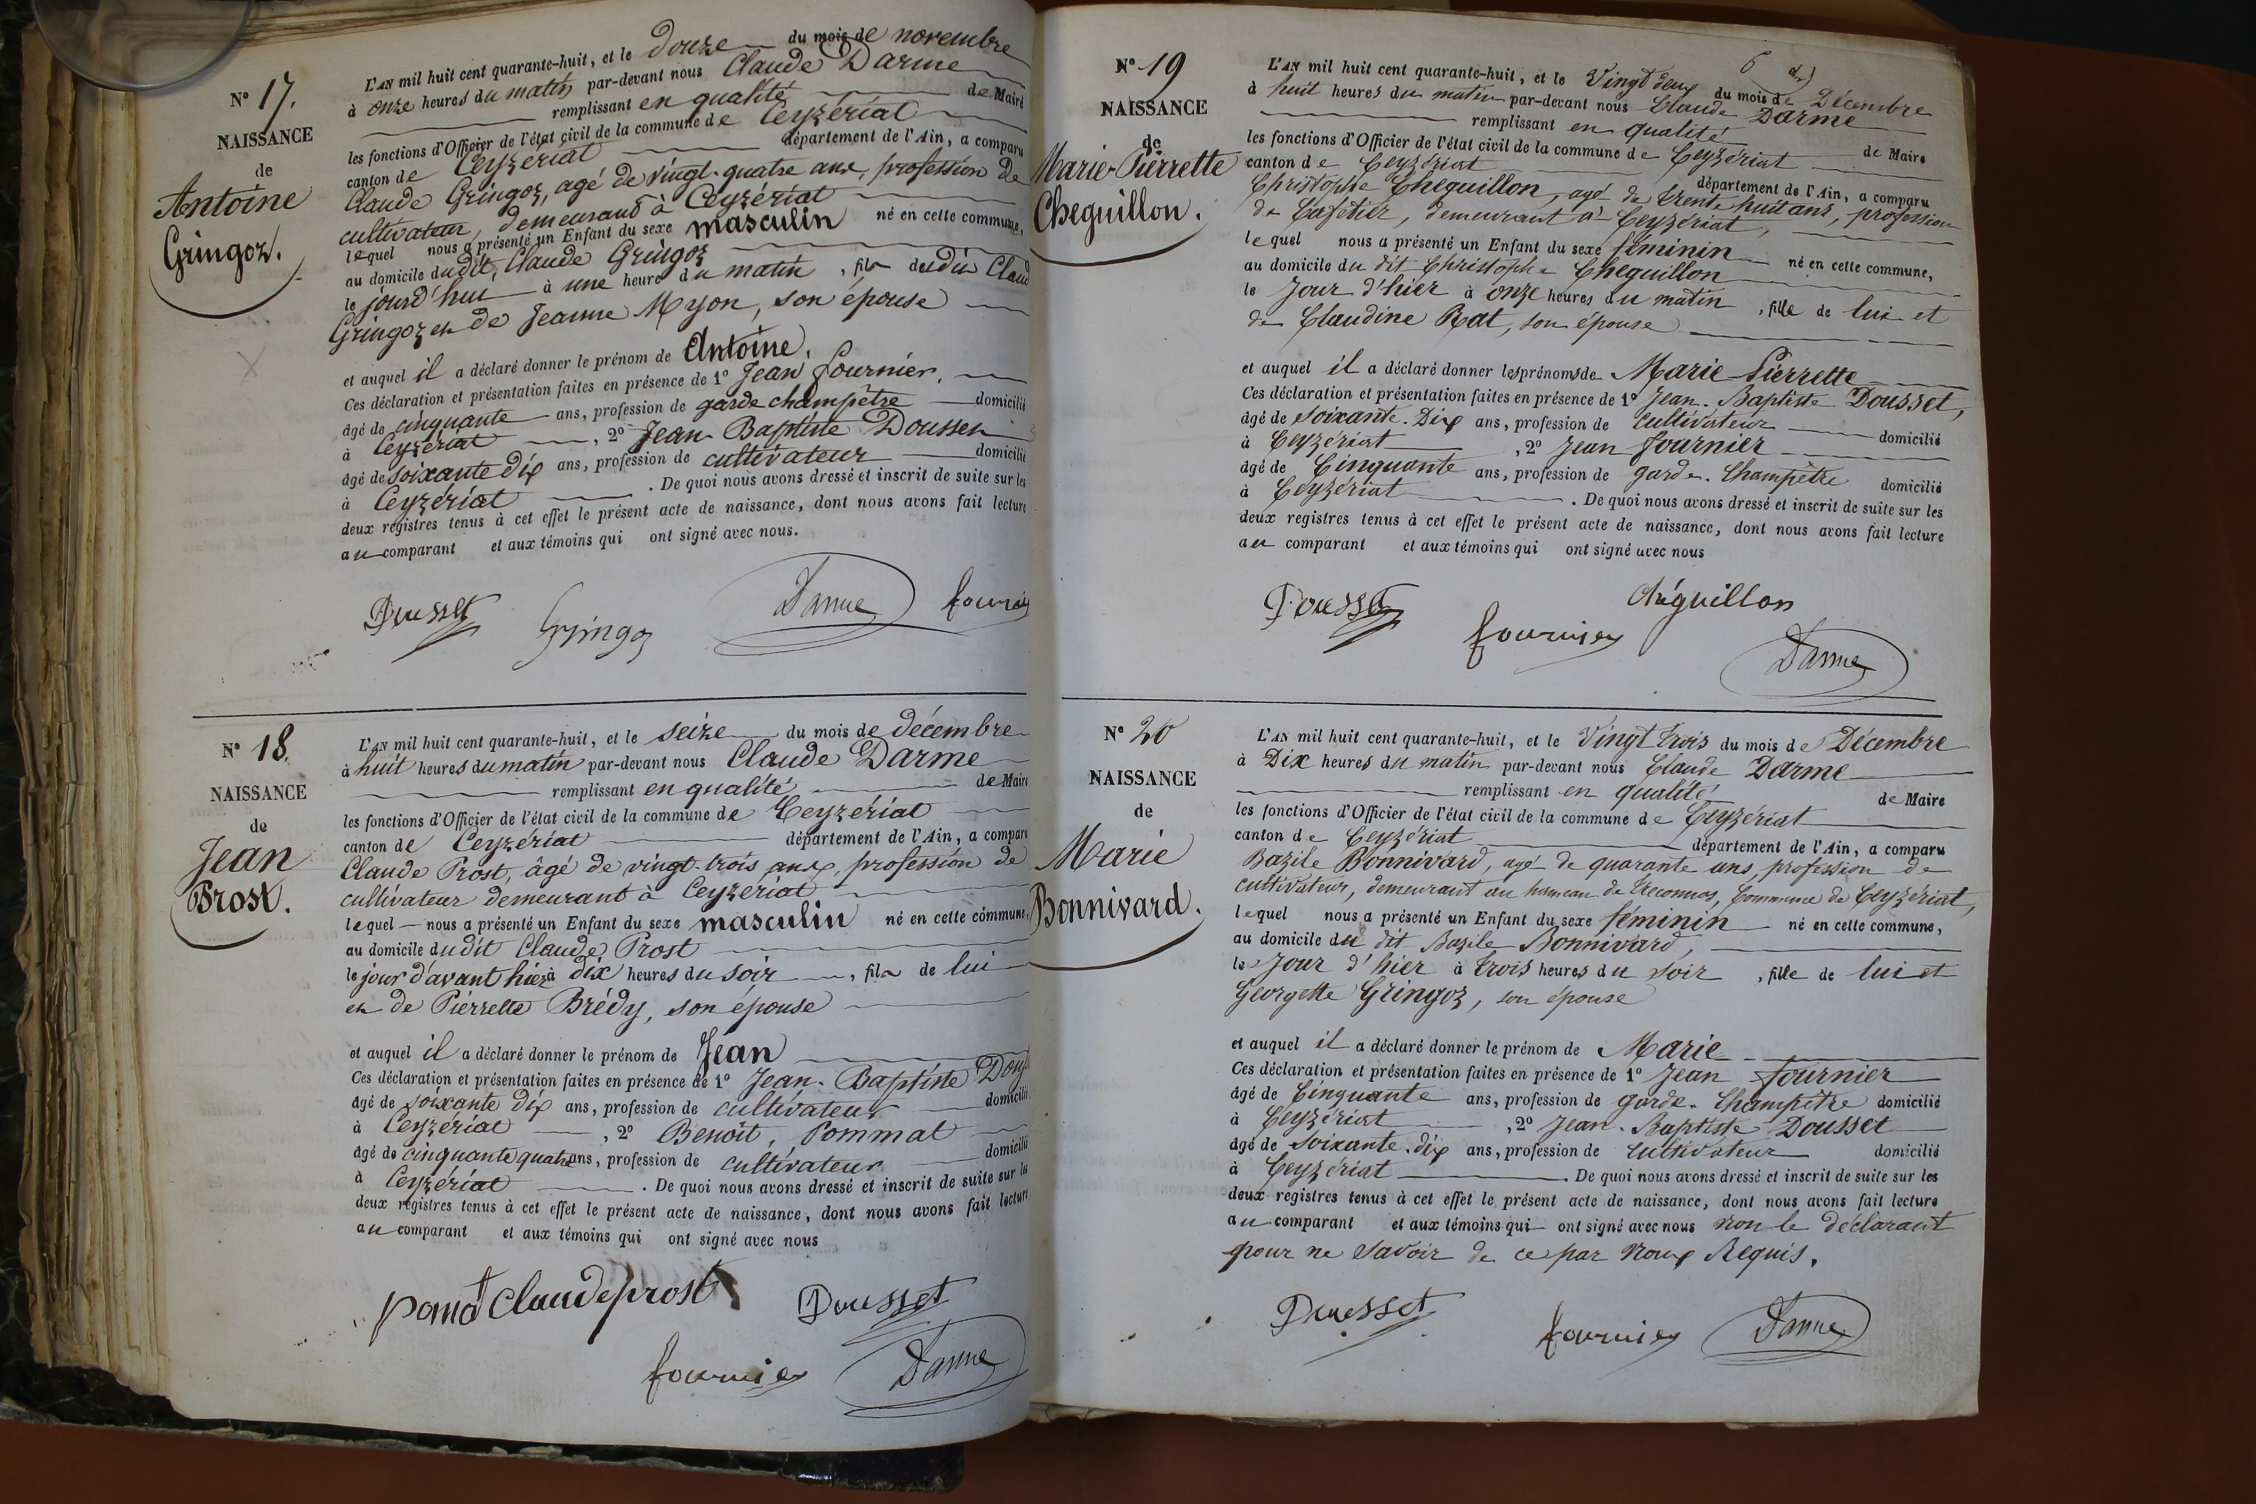 N° 17.
NAISSANCE
de
Antoine
Gringoz.
L'AN mil huit cent quarante-huit, et le douze du mois de novembre
à onze heures du matin par-devant nous Claude Darme
remplissant en qualité de Maire
les fonctions d'Officier de l'état civil de la commune de Ceyzériat
canton de Ceyzériat département de l'Ain, a comparu
Claude Gringoz, agé de vingt-quatre ans, profession de
cultivateur, demeurant à Ceyzériat
lequel nous a présenté un Enfant du sexe masculin né en cette commune,
au domicile dudit, Claude Gringoz
le jourd'hui à une heure du matin, fils dudit Claud
Gringoz et de Jeanne Myon, son épouse
et auquel il a déclaré donner le prénom de Antoine.
Ces déclaration et présentation faites en présence de 1° Jean fournier,
âgé de cinquante ans, profession de garde champêtre domicilié
à Ceyzériat, 2° Jean-Baptiste Dousset
âgé de soixante dix ans, profession de cultivateur domicilié
à Ceyzériat. De quoi nous avons dressé et inscrit de suite sur les
deux registres tenus à cet effet le présent acte de naissance, dont nous avons fait lecture
au comparant et aux témoins qui ont signé avec nous.
Dousset Gringoz Darme fournier
N° 18.
NAISSANCE
de
Jean
Prost.
L'AN mil huit cent quarante-huit, et le seize du mois de décembre
à huit heures du matin par-devant nous Claude Darme
remplissant en qualité de Maire
les fonctions d'Officier de l'état civil de la commune de Ceyzériat
canton de Ceyzériat département de l'Ain, a comparu
Claude Prost, âgé de vingt-trois ans, profession de
cultivateur demeurant à Ceyzériat
lequel nous a présenté un Enfant du sexe masculin né en cette commune,
au domicile dudit Claude Prost
le jour d'avant hier à dix heures du soir, fils de lui
et de Pierrette Brédy, son épouse
et auquel il a déclaré donner le prénom de Jean
Ces déclaration et présentation faites en présence de 1° Jean-Baptiste Dous
âgé de soixante dix ans, profession de cultivateur domicilié
à Ceyzériat, 2° Benoît, Pommat
âgé de cinquante quatre ans, profession de cultivateur domicilié
à Ceyzériat. De quoi nous avons dressé et inscrit de suite sur les
deux registres tenus à cet effet le présent acte de naissance, dont nous avons fait lecture
au comparant et aux témoins qui ont signé avec nous
pomat Claude prost Dousset
fournier Darme
N° 19
NAISSANCE
de
Marie-Pierrette
Cheguillon.
L'AN mil huit cent quarante-huit, et le Vingt deux du mois de Décembre
à huit heures du matin par-devant nous Claude Darme
remplissant en qualité de Maire
les fonctions d'Officier de l'état civil de la commune de Ceyzériat
canton de Ceyzériat département de l'Ain, a comparu
Christophe Cheguillon, agé de trente huit ans, profession
de Cafetier, demeurant à Ceyzériat,
lequel nous a présenté un Enfant du sexe féminin né en cette commune,
au domicile du dit Christophe Cheguillon
le Jour d'hier à onze heures du matin, fille de lui et
de Claudine Rat, son épouse
et auquel il a déclaré donner les prénoms de Marie Pierrette
Ces déclaration et présentation faites en présence de 1° Jean-Baptiste Dousset,
âgé de soixante-Dix ans, profession de cultivateur domicilié
à Ceyzériat, 2° Jean fournier
âgé de Cinquante ans, profession de garde-Champêtre domicilié
à Ceyzériat. De quoi nous avons dressé et inscrit de suite sur les
deux registres tenus à cet effet le présent acte de naissance, dont nous avons fait lecture
au comparant et aux témoins qui ont signé avec nous
Dousset fournier Chéguillon
Darme
N° 20
NAISSANCE
de
Marie
Bonnivard.
L'AN mil huit cent quarante-huit, et le Vingt trois du mois de Décembre
à Dix heures du matin par-devant nous Claude Darme
remplissant en qualité de Maire
les fonctions d'Officier de l'état civil de la commune de Ceyzériat
canton de Ceyzériat département de l'Ain, a comparu
Bazile Bonnivard, agé de quarante ans, profession de
cultivateur, demeurant au hameau de Treconnas, Commune de Ceyzériat,
lequel nous a présenté un Enfant du sexe féminin né en cette commune,
au domicile du dit Bazile Bonnivard,
le Jour d'hier à trois heures du soir, fille de lui et
Georgette Gringoz, son épouse
et auquel il a déclaré donner le prénom de Marie
Ces déclaration et présentation faites en présence de 1° Jean fournier
âgé de Cinquante ans, profession de garde-Champêtre domicilié
à Ceyzériat, 2° Jean-Baptiste Dousset
âgé de Soixante-dix ans, profession de cultivateur domicilié
à Ceyzériat. De quoi nous avons dressé et inscrit de suite sur les
deux registres tenus à cet effet le présent acte de naissance, dont nous avons fait lecture
au comparant et aux témoins qui ont signé avec nous non le déclarant
pour ne savoir de ce par Nous Requis.
Dousset fournier Darme